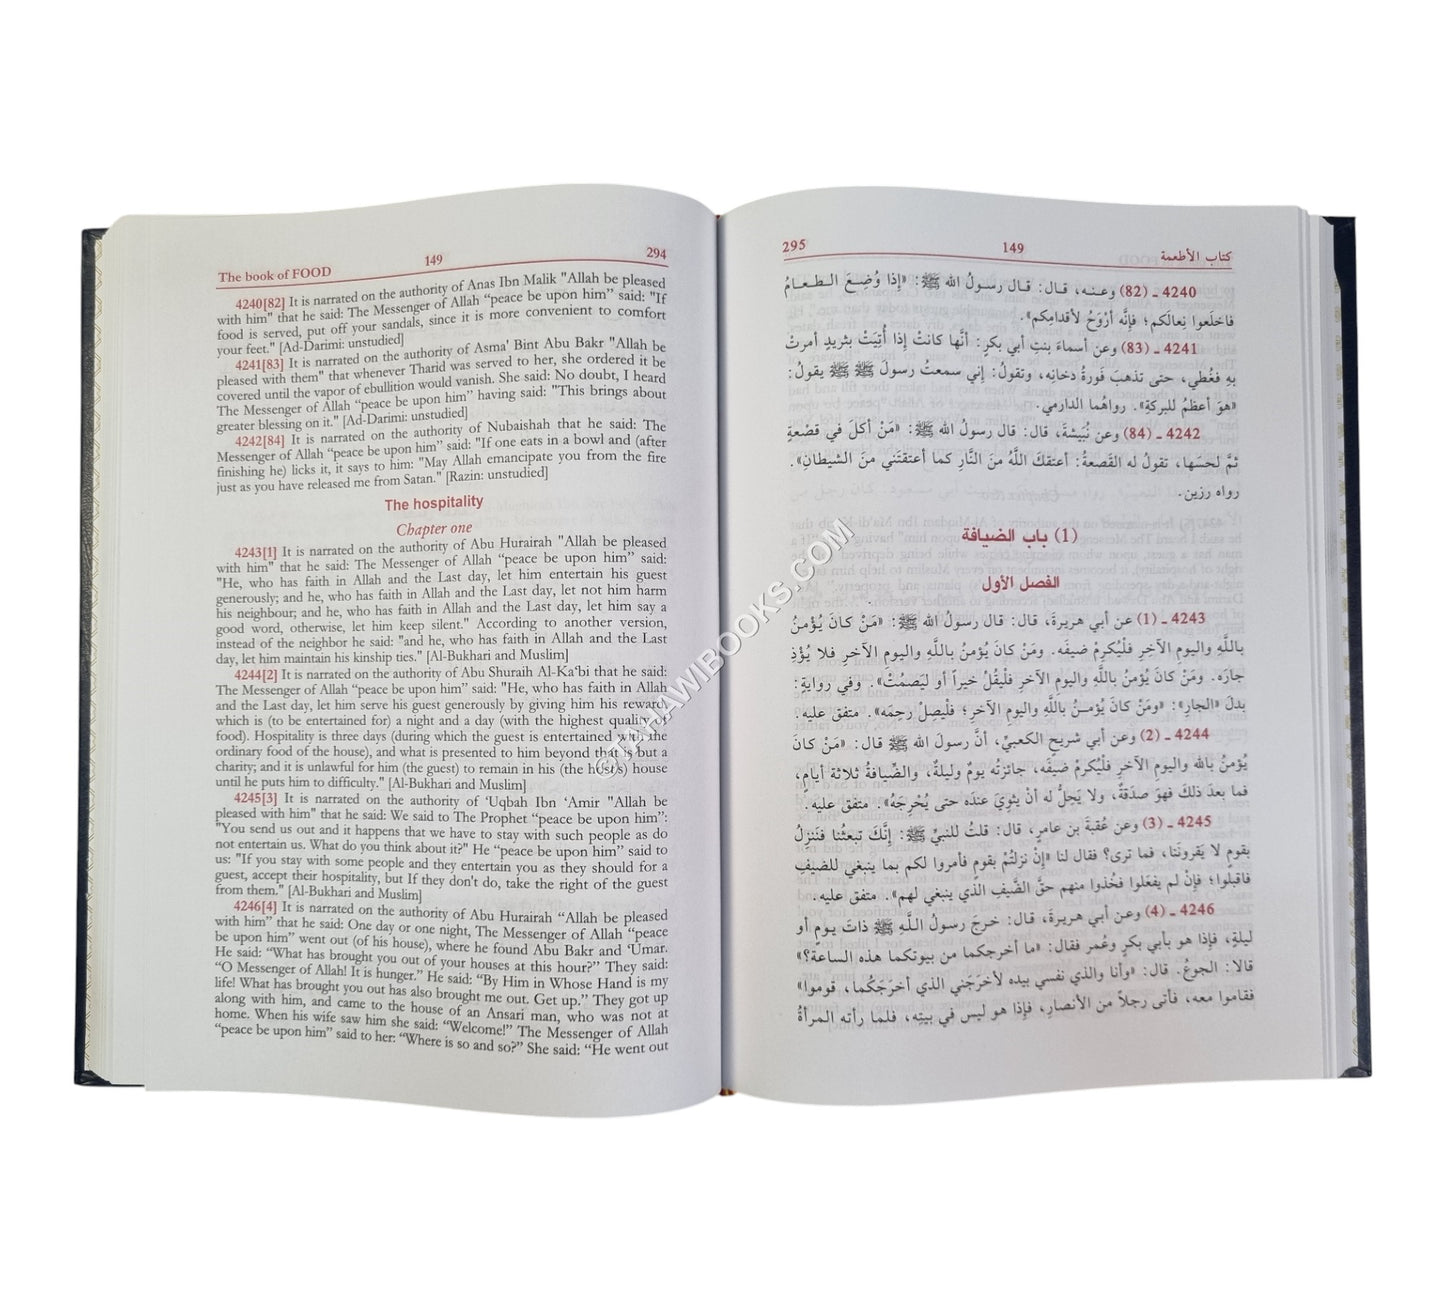 The book of FOOD 149 294
4240[82] It is narrated on the authority of Anas Ibn Malik "Allah be pleased
with him" that he said: The Messenger of Allah “peace be upon him” said: "If
food is served, put off your sandals, since it is more convenient to comfort
your feet." [Ad-Darimi: unstudied]
4241[83] It is narrated on the authority of Asma' Bint Abu Bakr "Allah be
pleased with them" that whenever Tharid was served to her, she ordered it be
covered until the vapor of ebullition would vanish. She said: No doubt, I heard
The Messenger of Allah “peace be upon him” having said: "This brings about
greater blessing on it." [Ad-Darimi: unstudied]
4242[84] It is narrated on the authority of Nubaishah that he said: The
Messenger of Allah “peace be upon him” said: "If one eats in a bowl and (after
finishing he) licks it, it says to him: "May Allah emancipate you from the fire
just as you have released me from Satan." [Razin: unstudied]
The hospitality
Chapter one
4243[1] It is narrated on the authority of Abu Hurairah "Allah be pleased
with him" that he said: The Messenger of Allah “peace be upon him” said:
"He, who has faith in Allah and the Last day, let him entertain his guest
generously; and he, who has faith in Allah and the Last day, let not him harm
his neighbour; and he, who has faith in Allah and the Last day, let him say a
good word, otherwise, let him keep silent." According to another version,
instead of the neighbor he said: "and he, who has faith in Allah and the Last
day, let him maintain his kinship ties." [Al-Bukhari and Muslim]
4244[2] It is narrated on the authority of Abu Shuraih Al-Ka‘bi that he said:
The Messenger of Allah “peace be upon him” said: "He, who has faith in Allah
and the Last day, let him serve his guest generously by giving him his reward
which is (to be entertained for) a night and a day (with the highest quality of
food). Hospitality is three days (during which the guest is entertained with the
ordinary food of the house), and what is presented to him beyond that is but a
charity; and it is unlawful for him (the guest) to remain in his (the host's) house
until he puts him to difficulty." [Al-Bukhari and Muslim]
4245[3] It is narrated on the authority of ‘Uqbah Ibn ‘Amir "Allah be
pleased with him" that he said: We said to The Prophet “peace be upon him”:
"You send us out and it happens that we have to stay with such people as do
not entertain us. What do you think about it?" He “peace be upon him” said to
us: "If you stay with some people and they entertain you as they should for a
guest, accept their hospitality, but If they don't do, take the right of the guest
from them." [Al-Bukhari and Muslim]
4246[4] It is narrated on the authority of Abu Hurairah “Allah be pleased
with him” that he said: One day or one night, The Messenger of Allah “peace
be upon him” went out (of his house), where he found Abu Bakr and ‘Umar.
He said: “What has brought you out of your houses at this hour?” They said:
“O Messenger of Allah! It is hunger.” He said: “By Him in Whose Hand is my
life! What has brought you out has also brought me out. Get up.” They got up
along with him, and came to the house of an Ansari man, who was not at
home. When his wife saw him she said: “Welcome!” The Messenger of Allah
“peace be upon him” said to her: “Where is so and so?” She said: “He went out
كتاب الأطعمة 149 295
4240 ـ (82) وعنه، قال: قال رسولُ الله ﷺ: «إِذا وُضِعَ الطعامُ
فاخلَعوا نِعالَكم؛ فإنَّه أرْوَحُ لأقدامِكم».
4241 ـ (83) وعن أسماءَ بنتِ أبي بكرٍ: أنَّها كانتْ إذا أُتِيَتْ بثريدٍ أمرتْ
بهِ فغُطي، حتى تذهبَ فَورةُ دخانِه، وتقولُ: إني سمعتُ رسولَ ﷺ ﷺ يقولُ:
«هوَ أعظمُ للبركةِ». رواهُما الدارمي.
4242 ـ (84) وعن نُبَيشةَ، قال: قال رسولُ الله ﷺ: «مَنْ أكلَ في قصْعةٍ
ثمَّ لحسَها، تقولُ له القَصعةُ: أعتقكَ اللَّهُ منَ النَّارِ كما أعتقتَني منَ الشيطانِ».
رواه رزين.
(1) باب الضيافة
الفصل الأول
4243 ـ (1) عن أبي هريرةَ، قال: قال رسولُ الله ﷺ: «مَنْ كانَ يُؤمنُ
باللَّهِ واليومِ الآخِرِ فلْيُكرِمْ ضيفَه. ومَنْ كانَ يُؤمنُ باللَّهِ واليومِ الآخرِ فلا يُؤذِ
جارَه. ومَنْ كانَ يُؤمنُ باللَّهِ واليومِ الآخرِ فلْيقُلْ خيراً أو لِيَصمُتْ». وفي روايةٍ:
بدلَ «الجارِ»: «ومَنْ كانَ يُؤمـنُ باللَّهِ واليومِ الآخرِ؛ فلْيصِلْ رحِمَه». متفق عليه.
4244 ـ (2) وعن أبي شريحٍ الكعبيِّ، أنَّ رسولَ الله ﷺ قال: «مَنْ كانَ
يُؤمنُ بالله واليومِ الآخرِ فلْيُكرِمْ ضيفَه، جائزتُه يومٌ وليلةٌ، والضِّيافةُ ثلاثةُ أيامٍ،
فما بعدَ ذلكَ فهوَ صدَقةٌ، ولا يَحِلُّ له أنْ يثويَ عندَه حتى يُحْرِجَهُ». متفق عليه.
4245 ـ (3) وعن عُقبةَ بن عامرٍ، قال: قلتُ للنبيِّ ﷺ: إنَّكَ تبعثُنا فنَنزِلُ
بقومٍ لا يَقرونَنا، فما ترى؟ فقال لنا «إنْ نزلتُمْ بقومٍ فأمروا لكم بما ينبغي للضيفِ
فاقبلوا؛ فإنْ لم يفعَلوا فخُذوا منهم حقَّ الضَّيفِ الذي ينبغي لهم». متفق عليه.
4246 ـ (4) وعن أبي هريرةَ، قال: خرجَ رسولُ اللَّهِ ﷺ ذاتَ يومٍ أو
ليلةٍ، فإذا هو بأبي بكرٍ وعُمر فقال: «ما أخرجكما من بيوتكما هذه الساعة؟»
قالا: الجوعُ. قال: «وأنا والذي نفسي بيده لأخرَجَني الذي أخرَجَكُما، قوموا»
فقاموا معه، فأتى رجلاً من الأنصارِ، فإذا هو ليس في بيتِه، فلما رأته المرأةُ
©TARAWIBOOKS.COM